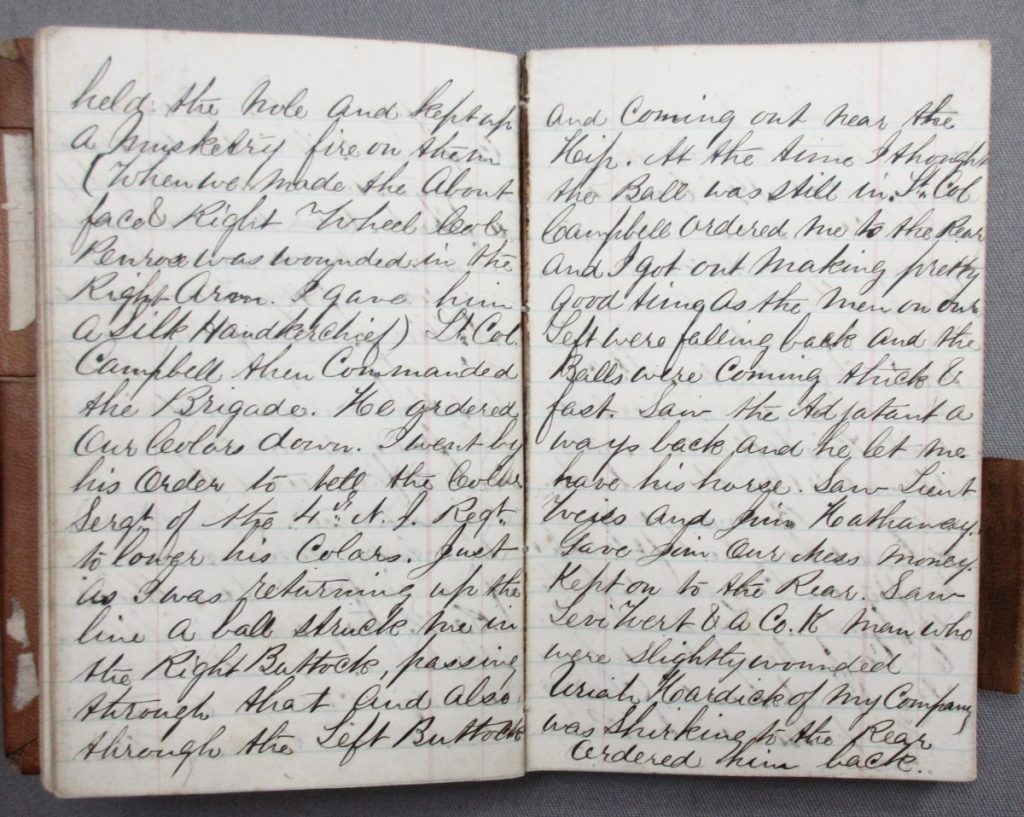 held the hole and kept up
a musketry fire on them
(When we made the About
face & Right Wheel Col.
Penrose was wounded in the
Right Arm. I gave him
a Silk Handkerchief) Lt. Col.
Campbell then Commanded
the Brigade. He ordered
Our Colors down. I went by
his Order to tell the Color
Sergt. of the 4th N. J. Regt.
to lower his Colars. Just
as I was returning up the
line a ball struck me in
the Right Buttock, passing
through that and also
through the Left Buttock
and Coming out near the
Hip. At the time I thought
the Ball was still in. Lt. Col
Campbell ordered me to the Rear
and I got out making pretty
good time as the men on our
Left were falling back and the
Balls were Coming thick &
fast. Saw the Adjatant a
ways back and he let me
have his horse. Saw Lieut
Weiss and Jim Hathaway.
Gave Jim Our Mess money.
Kept on to the Rear. Saw
Levi Wert & a Co. K man who
were slightly wounded
Uriah Hoardick of my Company
was Shirking to the Rear
Ordered him back.